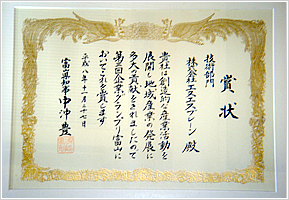 賞状
技術部門
株式会社エスエスブレーン 殿
貴社は創造的な産業活動を
展開し地域産業の発展に
多大の貢献をされましたので
第三回企業グランプリ富山に
おいてこれを賞します
平成八年十一月二十七日
富山県知事 中沖豊